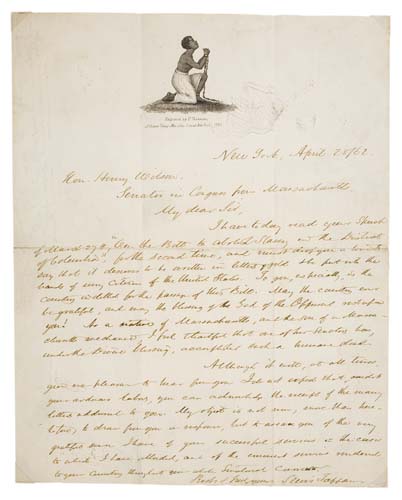 New York, April 28/62.
Hon. Henry Wilson
Senator in Congress from Massachusetts
My dear Sir,
I have today read your Speech
of March 27th, "On the Bill to abolish Slavery in the District
of Columbia", for the second time, and
say that it deserves to be written in letters of gold & be put into the
hands of every Citizen of the United States. To you, especially, is the
country indebted for the passage of this Bill. May the country ever
be grateful, and may the blessing of the God of the Oppressed rest upon
you! As a native of Massachusetts, and the son of a Massa-
chusetts mechanic, I feel thankful that one of her Senators has,
under the Divine blessing, accomplished such a humane deed.
Although it will, at all times
give me pleasure to hear from you I do not expect that, amidst
your arduous labors, you can acknowledge the receipt of the many
letters addressed to you. My object is not now, more than here-
tofore, to draw from you a response, but to assure you of the very
grateful sense I have of your successful services in the cause
to which I have alluded, and of the eminent services rendered
to your Country throughout your able Senatorial Career.
Lewis Tappan